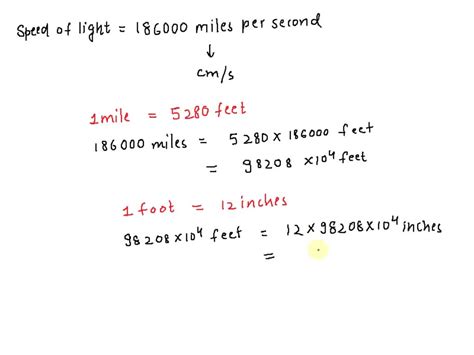 Speed of light = 186000 miles per second
↓
cm/s
1 mile = 5280 feet
186000 miles = 5280 × 186000 feet
= 98208 × 10⁴ feet
1 foot = 12 inches
98208 × 10⁴ feet = 12 × 98208 × 10⁴ inches
=